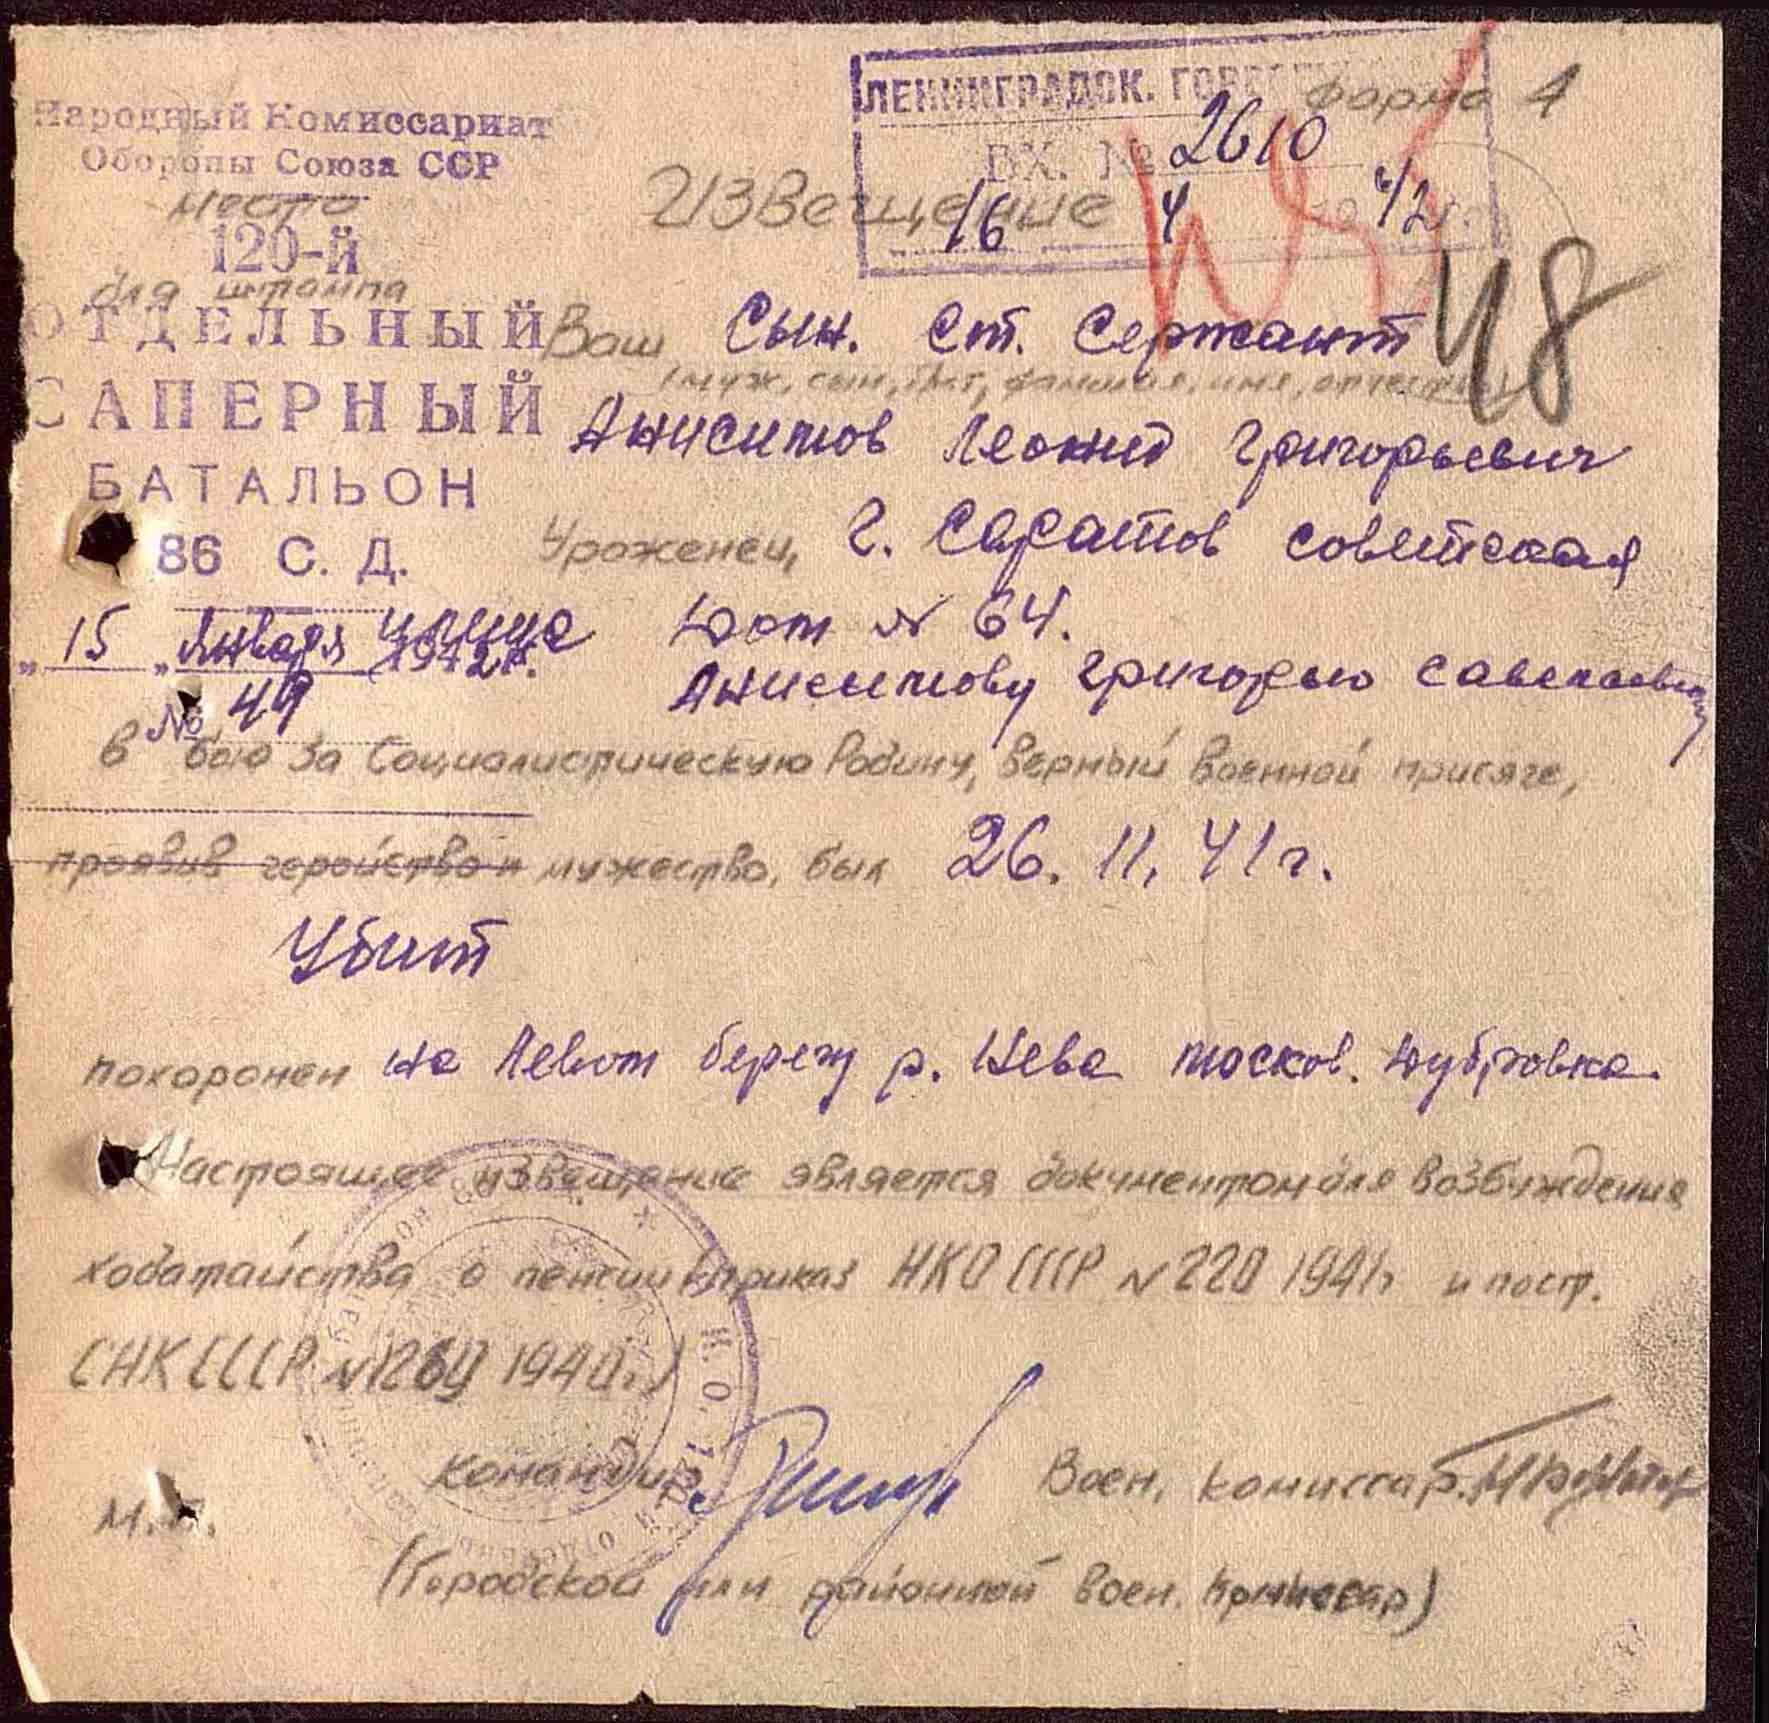 ЛЕНИНГРАДСК.
форма 4
Народный Комиссариат
Обороны Союза ССР
ВХ. № 2610
16 4 42
место
Извещение
120-й
для штампа
48
ОТДЕЛЬНЫЙ
Ваш Сын. Ст. Сержант
(муж, сын, брат, фамилия, имя, отчество)
САПЕРНЫЙ
Анисимов Леонид Григорьевич
БАТАЛЬОН
86 С. Д.
Уроженец, г. Саратов советская
улица Дом № 64.
"15" Января 1942г.
Анисимову Григорью Савельевичу
№ 49
в бою за Социалистическую Родину, верный военной присяге,
проявив геройство и мужество, был 26. 11. 41 г.
Убит
похоронен на Левом берегу р. Нева москов. Дубровка.
Настоящее извещение является документом для возбуждения
ходатайства о пенсии (приказ НКО СССР № 220 1941г. и пост.
СНК СССР № 1269 1940г.)
Командир
Воен. комиссар.
М.П.
(Городской или районной воен. комиссар)